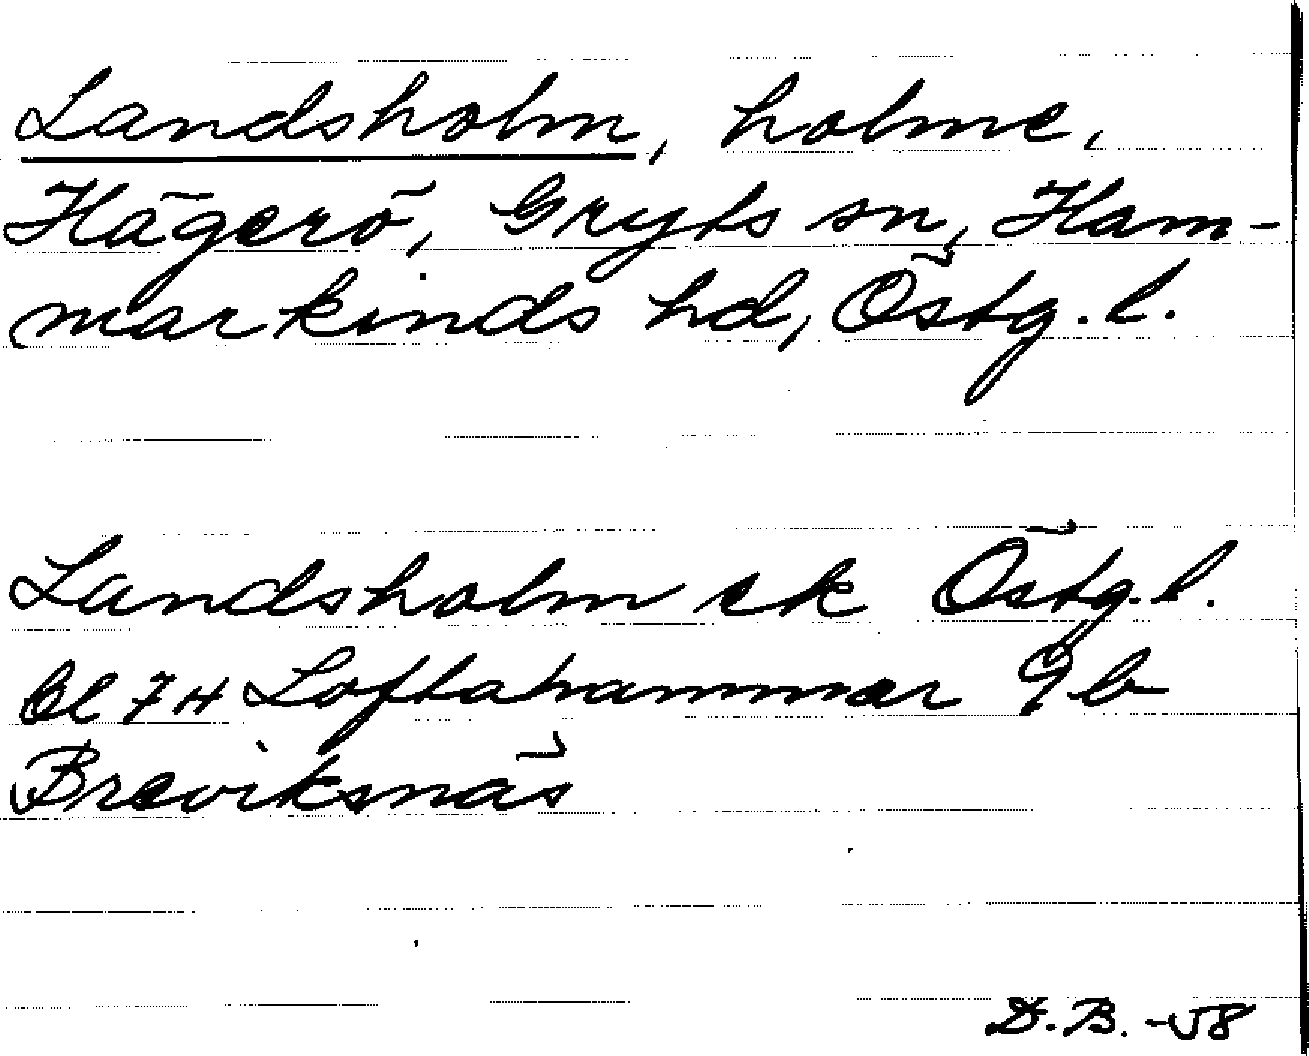 Landsholm, holme,
Hägerö, Gryts sn, Ham-
markinds hd, Östg. l.
Landsholm ek Östg. l.
Bl 7H Loftahammar 9b
Breviksnäs
D.B. -58